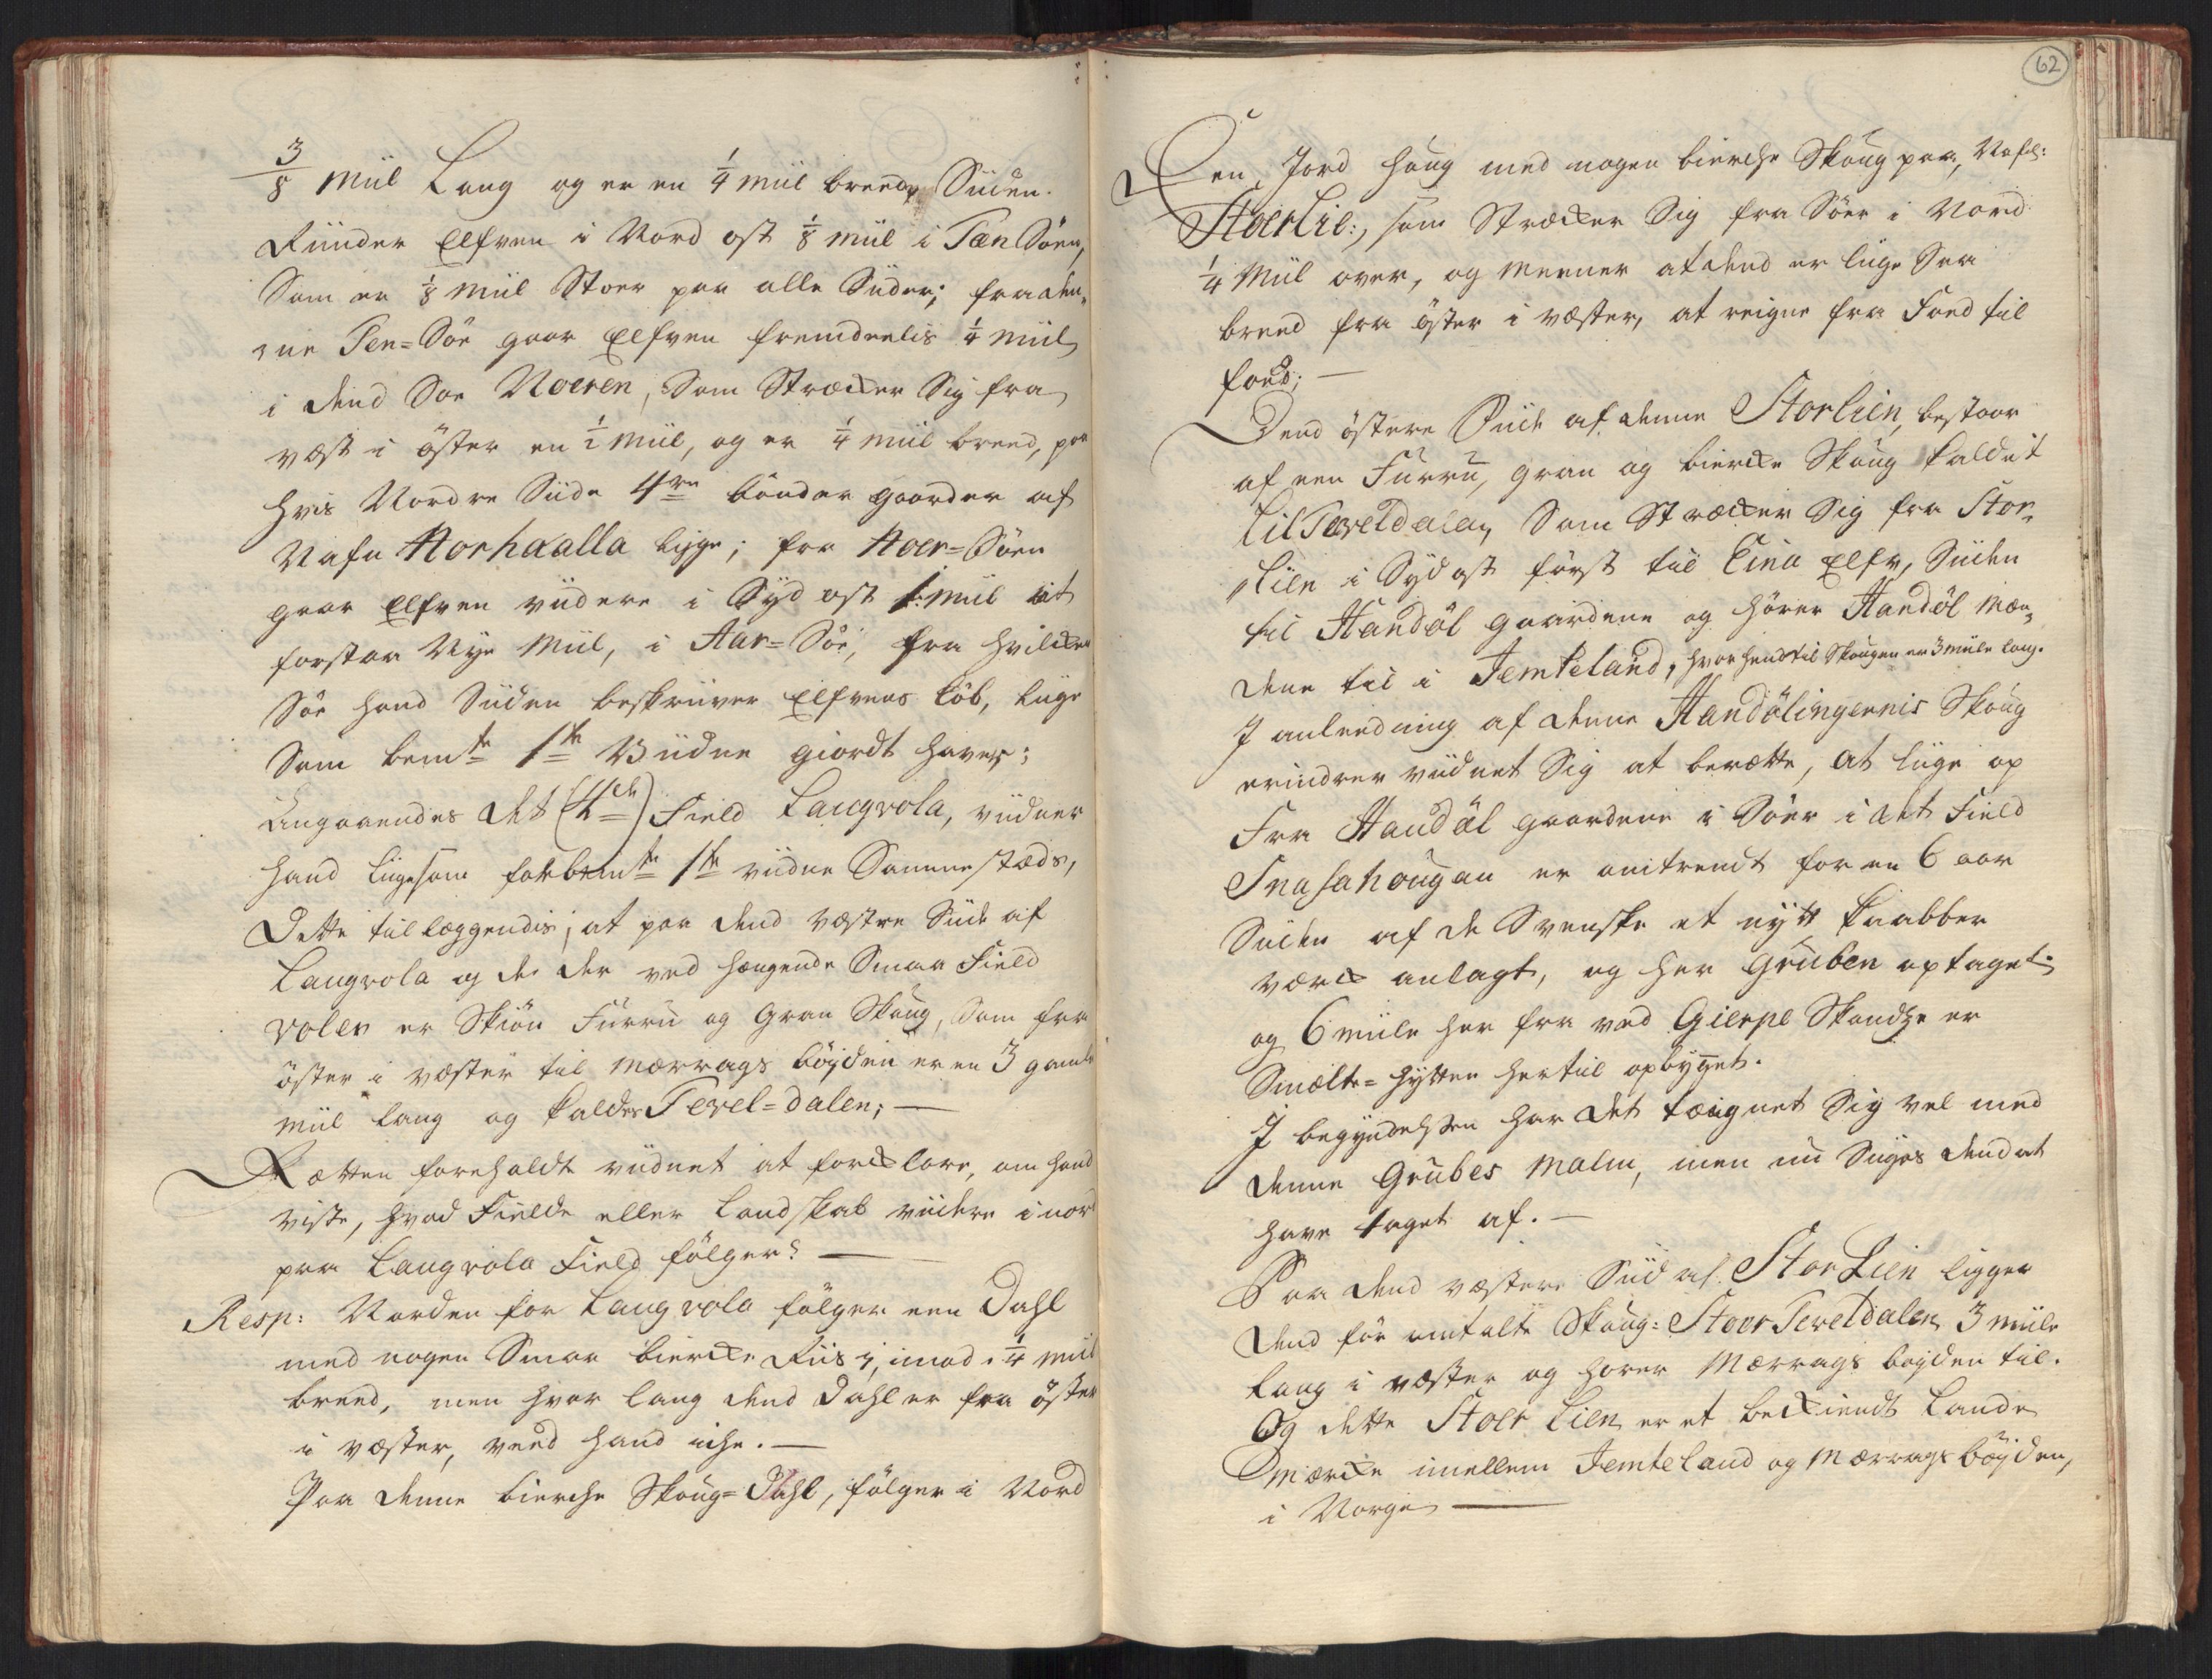 3/8 Miil Lang og er en 1/4 miil breed, Siiden
Riinder Elfven i Nord ost 1/8 miil i Tæn Söen,
Som er 1/8 miil Stoer paa alle Siider; fra den-
ne Ten-Söe gaar Elfven fremdeelis 1/4 miil
i dend Söe Noeren, Som Stræcker Sig fra
væst i öster en 1/2 miil, og er 1/4 miil breed, paa
hvis Nordre Siide 4re bönder gaarder af
Nafn Norhaalla ligge; fra Noer-Söen
gaar Elfven viidere i Syd ost 1: miil at
forstaa Nye Miil, i Aar-Söe, fra hvilcken
Söe hand Siiden beskriiver Elfvens Löb, liige
Som bemte 1te Viidne giordt haver;
Angaaendes det (4de) Field Langvola, viidner
hand liigesom forbemte 1te viidne Sammestæds,
Dette tillæggendis, at paa dend væstre Siide af
Langvola og de der ved hængende Smaa Field
voler er Skiön Furru og Gran Skoug, Som fra
öster i væster til Mærrags böyden er en 3 gamle
miil lang og kaldes Tevel-dalen; —
Rætten foreholdt viidnet at forcklare, om hand
viste, hvad Fielde eller Landskab viidere i nord
paa Langvola Field fölger? —
Resp: Norden for Langvola fölger een Dahl
med nogen Smaa biercke Riis i, imod 1/4 miil
breed, men hvor lang dend Dahl er fra öster
i væster, veed hand iche. —
Paa denne bierche Skoug-Dahl, fölger i Nord
62
Een Jord houg med nogen bierche Skoug paa, Nafl:
Stoerlie:, som Stræcker Sig fra Söer i Nord
1/4 Miil over, og meener at dend er liige Saa
breed fra öster i væster, at reigne fra Foed til
foed; —
Dend östere Siide af denne Storlien, bestaar
af een Furru, gran og biercke Skoug kaldet
Lil Teveldalen, Som Stræcker Sig fra Stor-
liien i Syd ost först til Eina Elfv, Siiden
til Handöl gaardene og hörer Handöl Mæn-
dene til i Jemteland, hvor hend til Skougen er 3 miile lang.
I anleedning af denne Handölingernis Skoug
erindrer viidnet Sig at berætte, at liige op
Fra Handöl gaardene i Söer i det Field
Snasahougan er anitrendt for en 6 aar
Siiden af de Svenske et nytt kaabber
værck anlagt, og her Gruben optaget.
og 6 miile her fra ved Gierpe Skandze er
Smælte-hytten hertil opbygget.
I begyndelssen har det tæignet Sig vel med
denne Grubes Malm, men nu Siiges dend at
have taget af. —
Paa dend væstere Siid af StorLien ligger
dend för omtalte Skoug: Stoer Teveldalen 3 miile
lang i væster og hörer Mærrags böyden til.
Og dette Stoer Lien er et beckiendt Lande
Mærcke imellem Jemteland og Mærrags böyden,
i Norge —